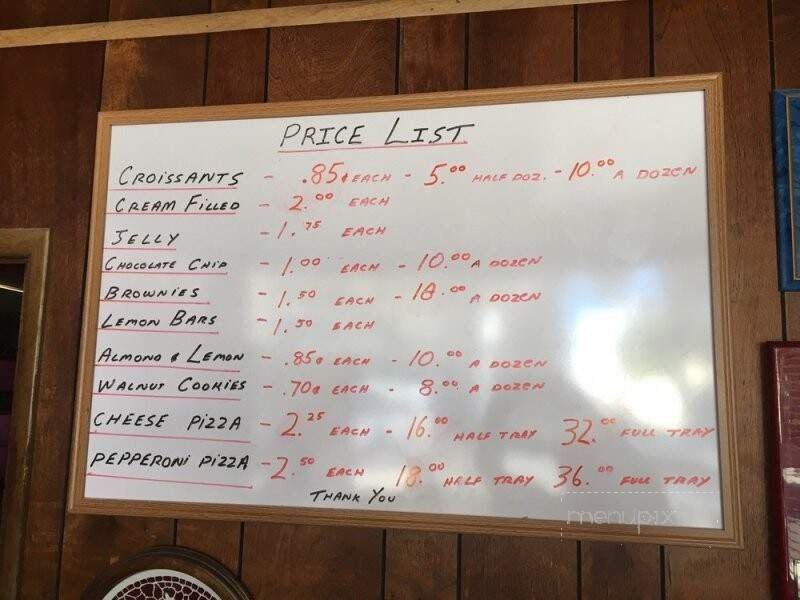 PRICE LIST
CROISSANTS - .85¢ EACH - 5.00 HALF DOZ. - 10.00 A DOZEN
CREAM FILLED - 2.00 EACH
JELLY - 1.75 EACH
CHOCOLATE CHIP - 1.00 EACH - 10.00 A DOZEN
BROWNIES - 1.50 EACH - 18.00 A DOZEN
LEMON BARS - 1.50 EACH
ALMOND & LEMON - .85¢ EACH - 10.00 A DOZEN
WALNUT COOKIES - .70¢ EACH - 8.00 A DOZEN
CHEESE PIZZA - 2.25 EACH - 16.00 HALF TRAY 32.00 FULL TRAY
PEPPERONI PIZZA - 2.50 EACH 18.00 HALF TRAY 36.00 FULL TRAY
THANK YOU
menupix